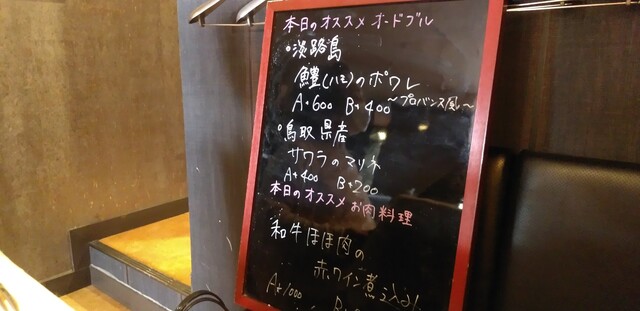 本日のオススメ オードブル
・淡路島
鱧(ハモ)のポワレ
A+600 B+400 〜プロバンス風〜
・鳥取県産
サワラのマリネ
A+400 B+200
本日のオススメ お肉料理
和牛ほほ肉の
赤ワイン煮込み
A+1000